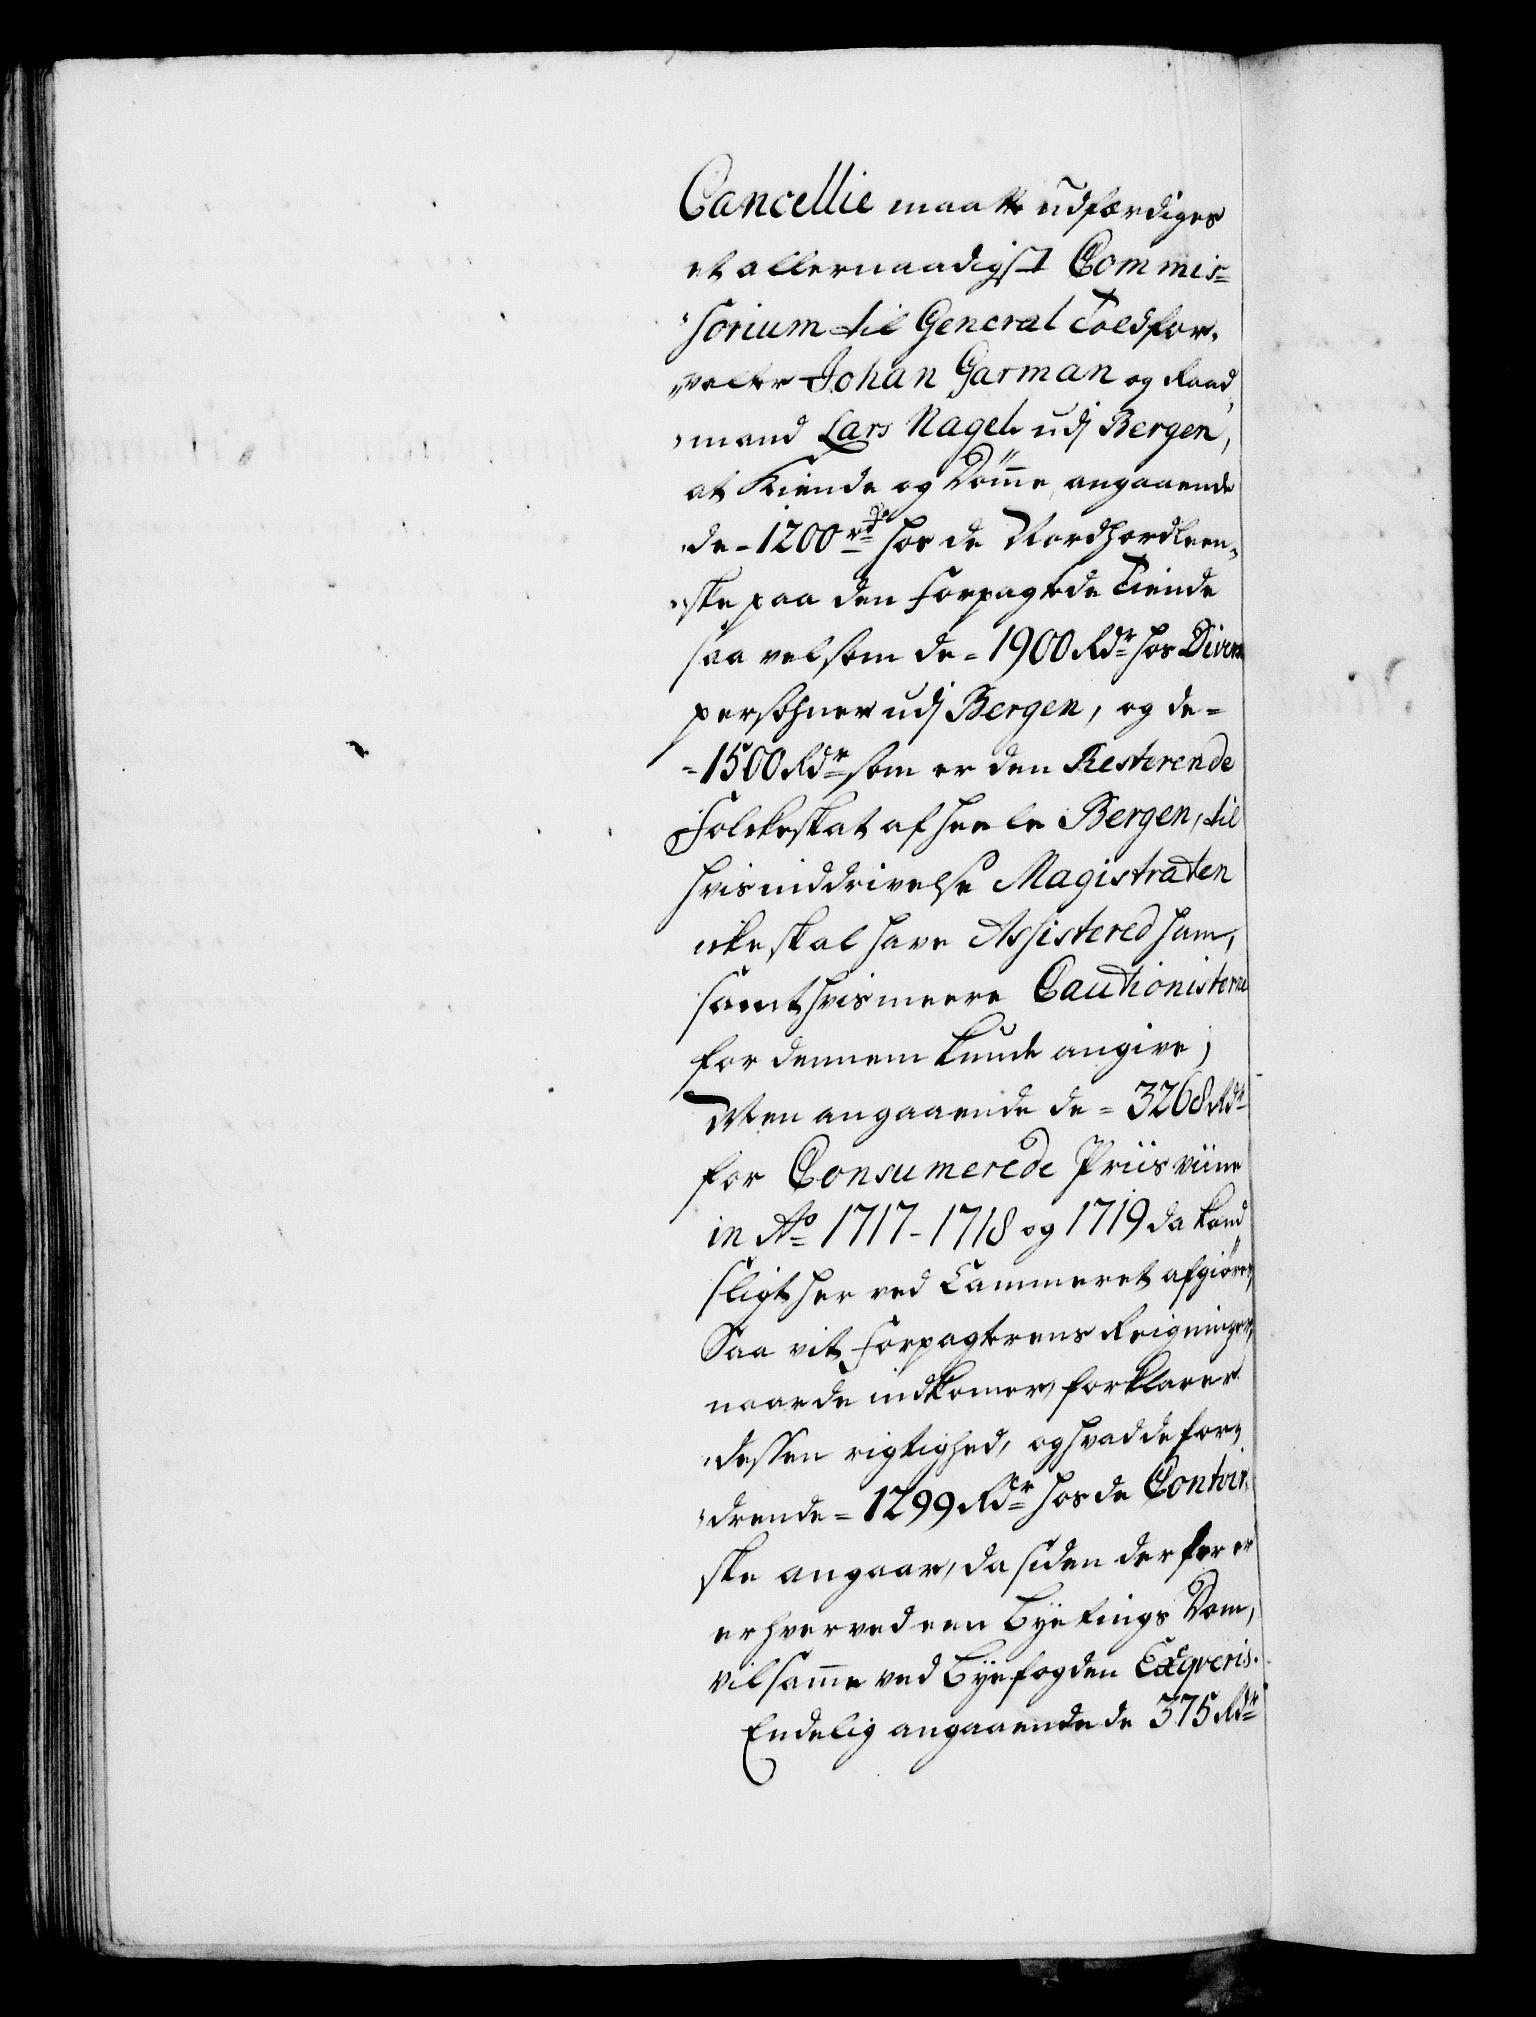 Cancellie maatte udfærdiges
et allernaadigst Commis=
sorium til General Toldfor,
valter Johan Garman og Raad,
mand Lars Nagel udj Bergen,
at Kiende og Dömme, angaaende
de = 1200 rdr hos de Nordhordleen,
ske paa den forpagtede Tiende
saa velsom de = 1900 Rdr hos Divers
persohner udj Bergen, og de =
= 1500 Rdr som er den Resterende
Folckeskat af heele Bergen, til
hvis inddrivelse Magistraten
icke skal have Assistered ham,
samt hvis meere Cautionisterne
for dennem kunde angive;
Men angaaende de = 3268 Rdr
for Consumerede Priis viine
in Ao 1717 - 1718 og 1719 da kand
sligt her ved Cammeret afgiöres,
Saa vit Forpagterens Reigninger,
naar de indkomer, forklarer
dessen rigtighed, og hvad de for,
drende = 1299 Rdr hos de Contoir,
ske angaar, da siden derfor er
erhvervedeen Byetings Dom,
vil samme ved Byefogden Exeqveris.
Endelig angaaende de 375 Rdr